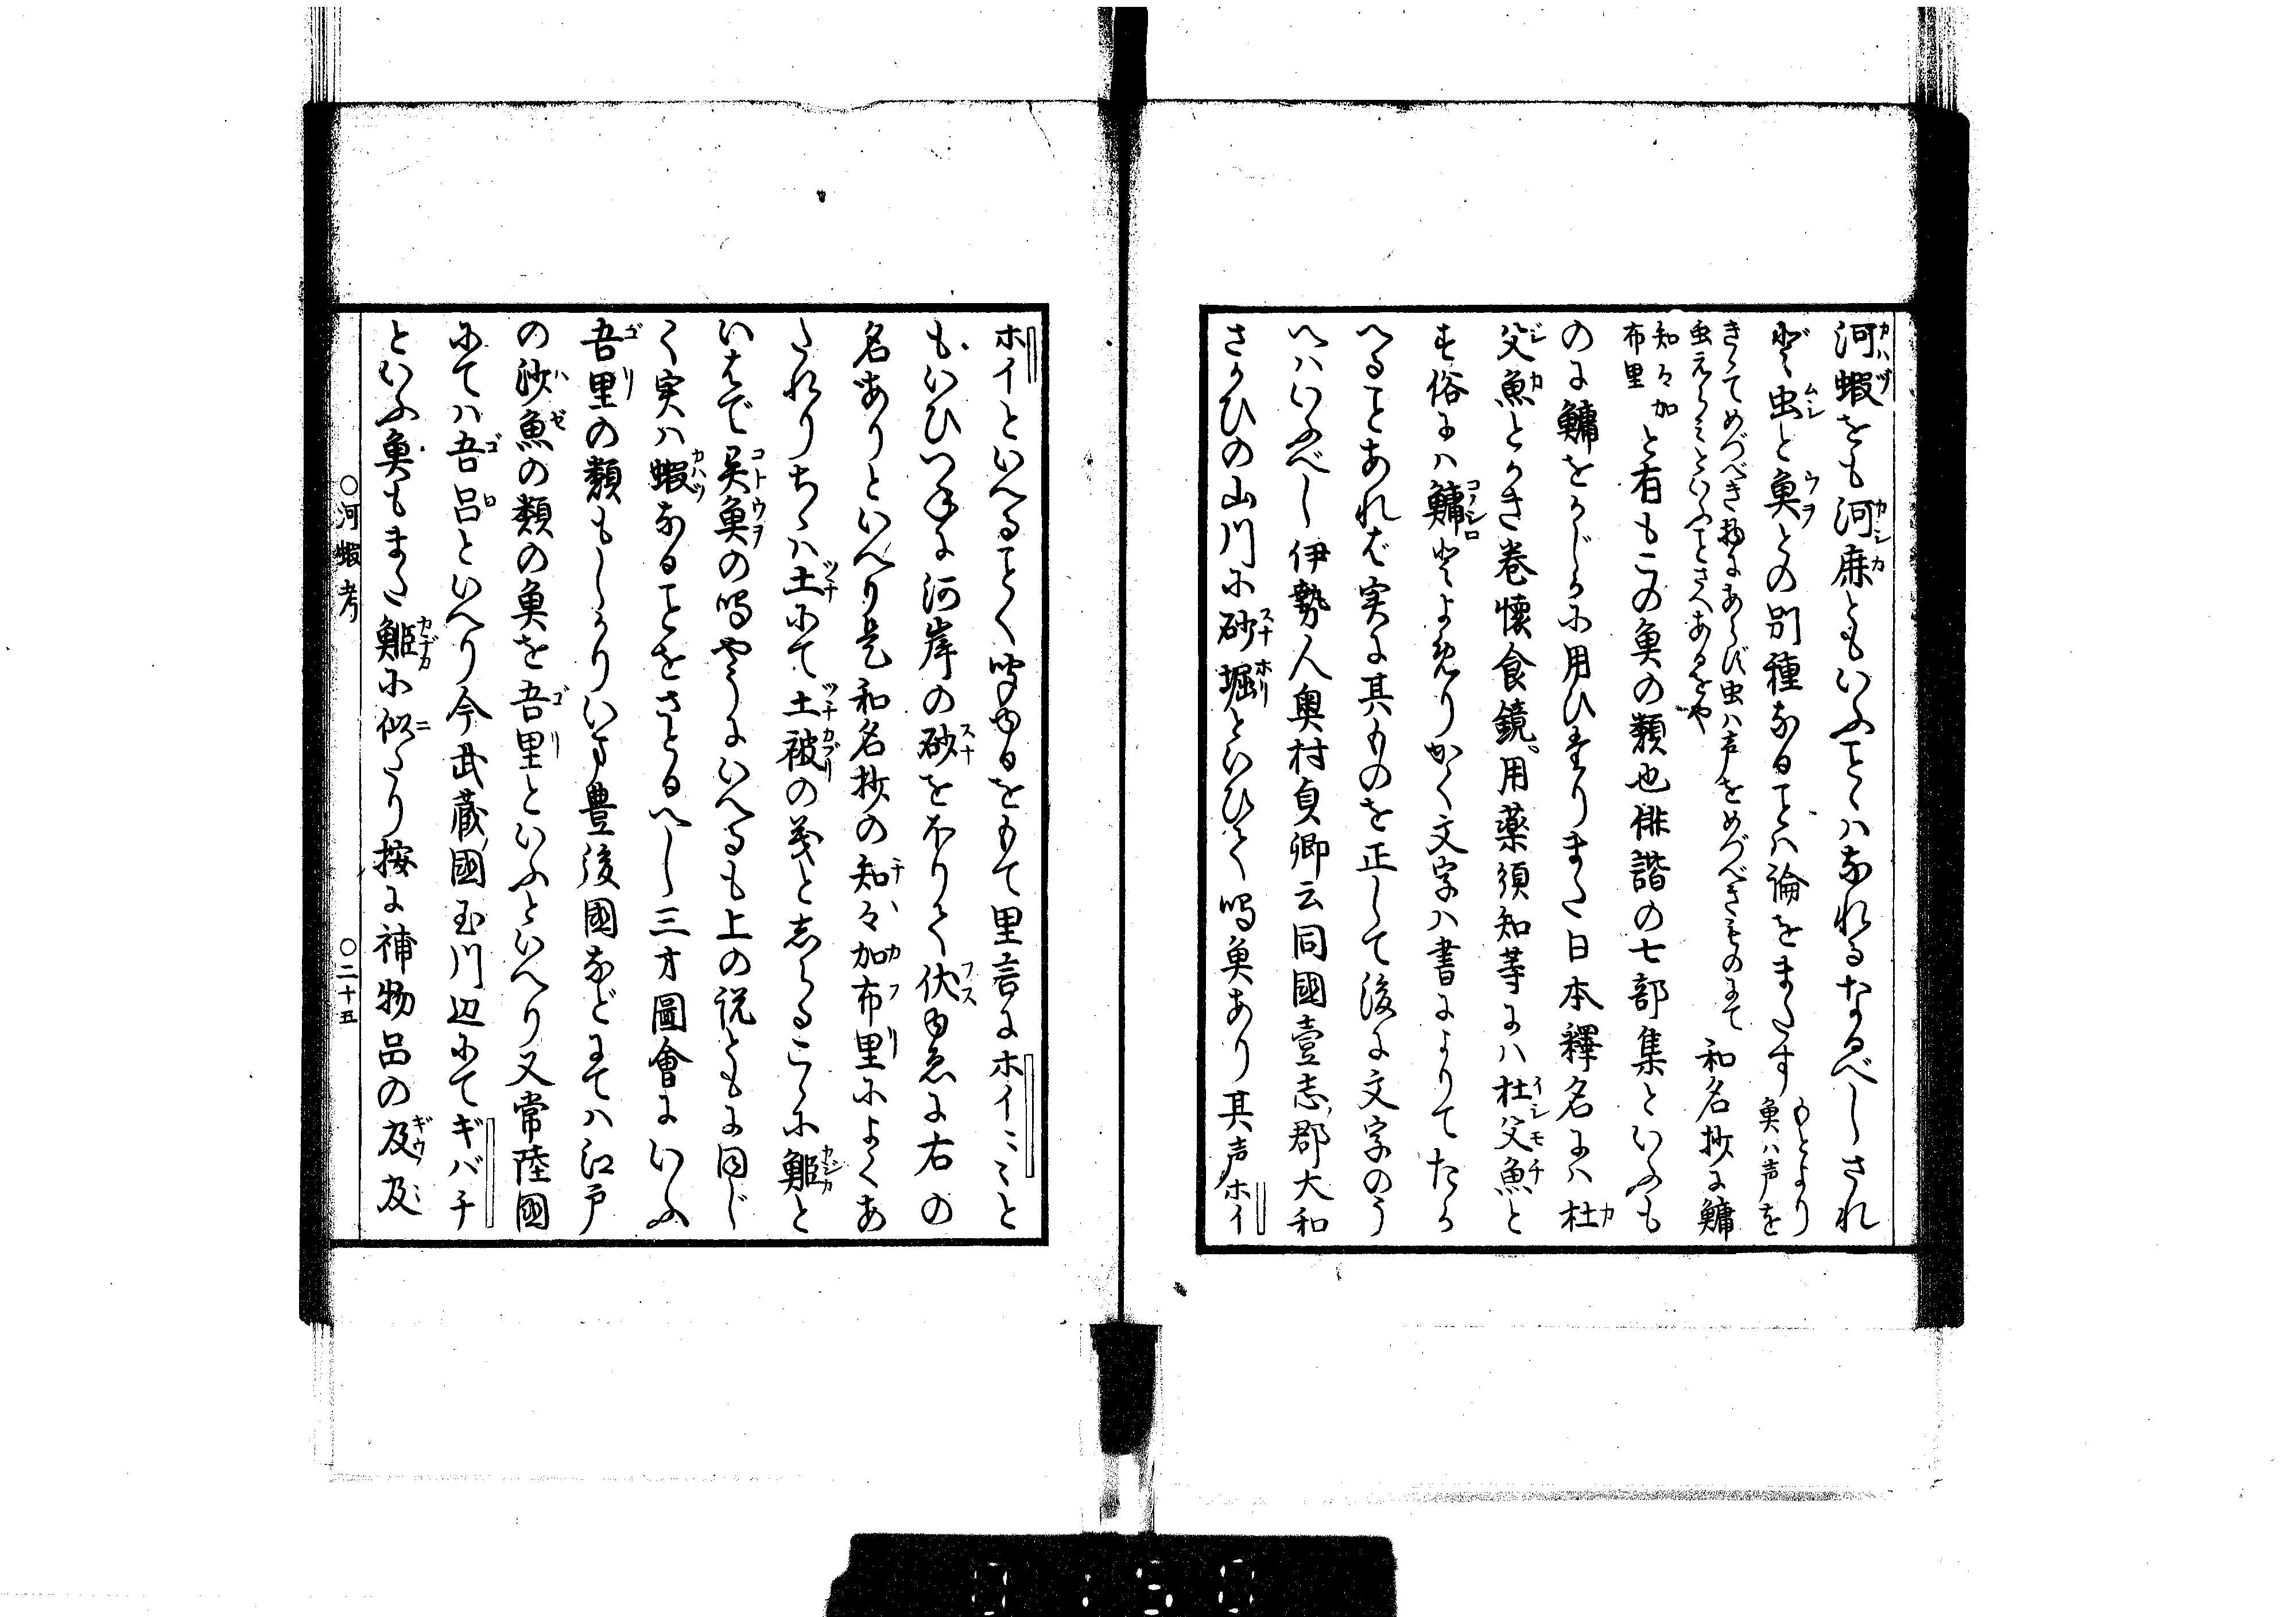 河蝦をも河鹿ともいふことゝハなれるなるべしされ
ど虫と魚との別種なることハ論をまたず もとより魚ハ声を
きゝてめづべき物にあらず虫ハ声をめづべきものにて
虫えらみといふことさへあるをや 和名抄に鱅
知々加布里 と有もこの魚の類也俳諧の七部集といふも
のに鱅をかじかに用ひたりまた日本釋名にハ杜
父魚とかき巻懐食鏡用薬須知等にハ杜父魚と
す俗にハ鱅とよめりかく文字ハ書によりてたが
へることあれど実に其ものを正して後に文字のう
へハいふべし伊勢人奥村貞卿云同國壹志郡大和
さかひの山川に砂堀といひて鳴魚あり其声ホイ
ホイといへることく聞ゆるをもて里言にホイ〳〵と
もいひつねに河岸の砂をほりて伏ゆゑに右の
名ありといへり是和名抄の知々加布里によくあ
たれりちゝハ土にて土被の義と志らるこゝに䱌と
いはで異魚の鳴やうにいへるも上の説ともに同じ
く実ハ蝦なることをさとるへし三才圖會にいふ
吾里の類もしかりいま豊後國などにてハ江戸
の沙魚の類の魚を吾里といふといへり又常陸國
にてハ吾呂といへり今武蔵國玉川辺にてギバチ
といふ魚もまた䱌に似たり按に補物品の𩵋𩵋
○河蝦考 ○二十五